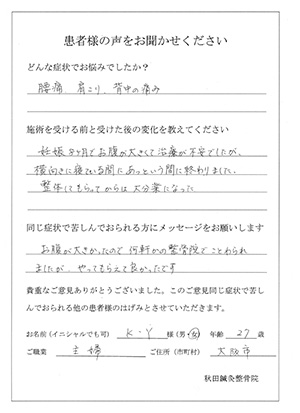 患者様の声をお聞かせください
どんな症状でお悩みでしたか？
腰痛 肩こり、背中の痛み
施術を受ける前と受けた後の変化を教えてください
妊娠8ヶ月でお腹が大きくて治療が不安でしたが、
横向きに寝ている間にあっという間に終わりました。
整体してもらってからは大分楽になった
同じ症状で苦しんでおられる方にメッセージをお願いします
お腹が大きかったので何軒かの整骨院でことわられ
ましたが、やってもらえて良かったです
貴重なご意見ありがとうございました。このご意見同じ症状で苦し
んでおられる他の患者様のはげみとさせていただきます。
お名前（イニシャルでも可） K-Y 様（男・女） 年齢 27 歳
ご職業 主婦 ご住所（市町村） 大阪市
秋田鍼灸整骨院